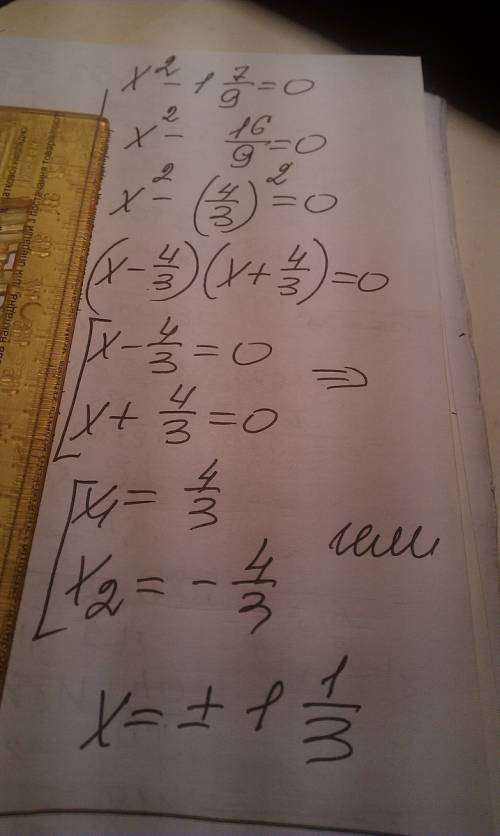 x² - 1 7/9 = 0
x² - 16/9 = 0
x² - (4/3)² = 0
(x - 4/3)(x + 4/3) = 0
[ x - 4/3 = 0
x + 4/3 = 0 ⇒
[ x₁ = 4/3
x₂ = - 4/3 или
x = ± 1 1/3